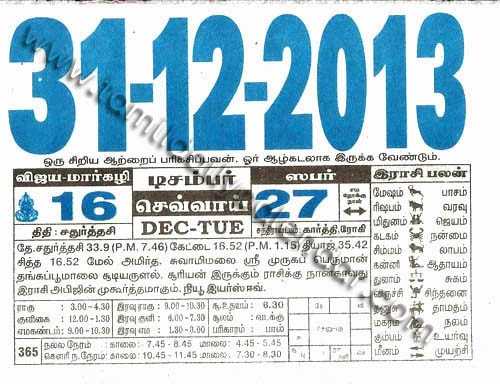 31-12-2013
ஒரு சிறிய ஆற்றைப் பரிகசிப்பவன், ஓர் ஆழ்கடலாக இருக்க வேண்டும்.
விஜய-மார்கழி டிசம்பர் ஸபர் இராசி பலன்
16 செவ்வாய் 27
திதி : சதுர்த்தசி DEC-TUE சந்திராஷ்டமம் - கார்த்தி,ரோகி
தே.சதுர்த்தசி 33.9 (P.M. 7.46) கேட்டை 16.52 (P.M. 1.15) தியாஜ் 35.42
சித்த 16.52 மேல் அமிர்த. சுவாமிமலை ஸ்ரீ முருகப் பெருமான்
தங்கப்பூமாலை சூடியருளல். சூரியன் இருக்கும் ராசிக்கு நான்காவது
இராசி அபிஜின் முகூர்த்தமாகும். நியூ இயர்ஸ் ஈவ்.
மேஷம் பாசம்
ரிஷபம் வரவு
மிதுனம் ஜெயம்
கடகம் நன்மை
சிம்மம் லாபம்
கன்னி ஆதாயம்
துலாம் சுகம்
சிந்தனை
தனுசு தாமதம்
மகரம் நலம்
கும்பம் உயர்வு
மீனம் முயற்சி
ராகு 3.00-4.30 இரவு ராகு - 9.00-10.30 சூ.உதயம் : 6.30
குளிகை 12.00-1.30 இரவு குளி - 9.00-10.30 சூலம் : வடக்கு
எமகண்டம் - 9.00-10.30 இரவு எம - 1.30-3.00 பரிகாரம் : பால்
365 நல்ல நேரம் : காலை : 7.45 - 8.45 மாலை : 4.45 - 5.45
கௌரி ந.நேரம் : காலை : 10.45 - 11.45 மாலை : 7.30 - 8.30